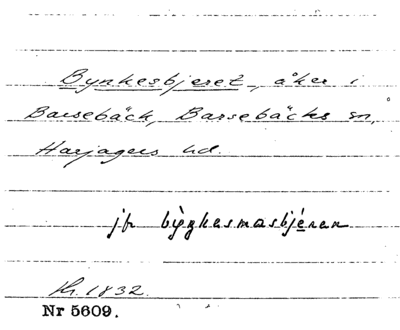 Bynkesbjeret, åker i
Barsebäck, Barsebäcks sn,
Harjagers hd.
jfr bỳŋkesmasbjéren
Kr. 1832.
Nr 5609.